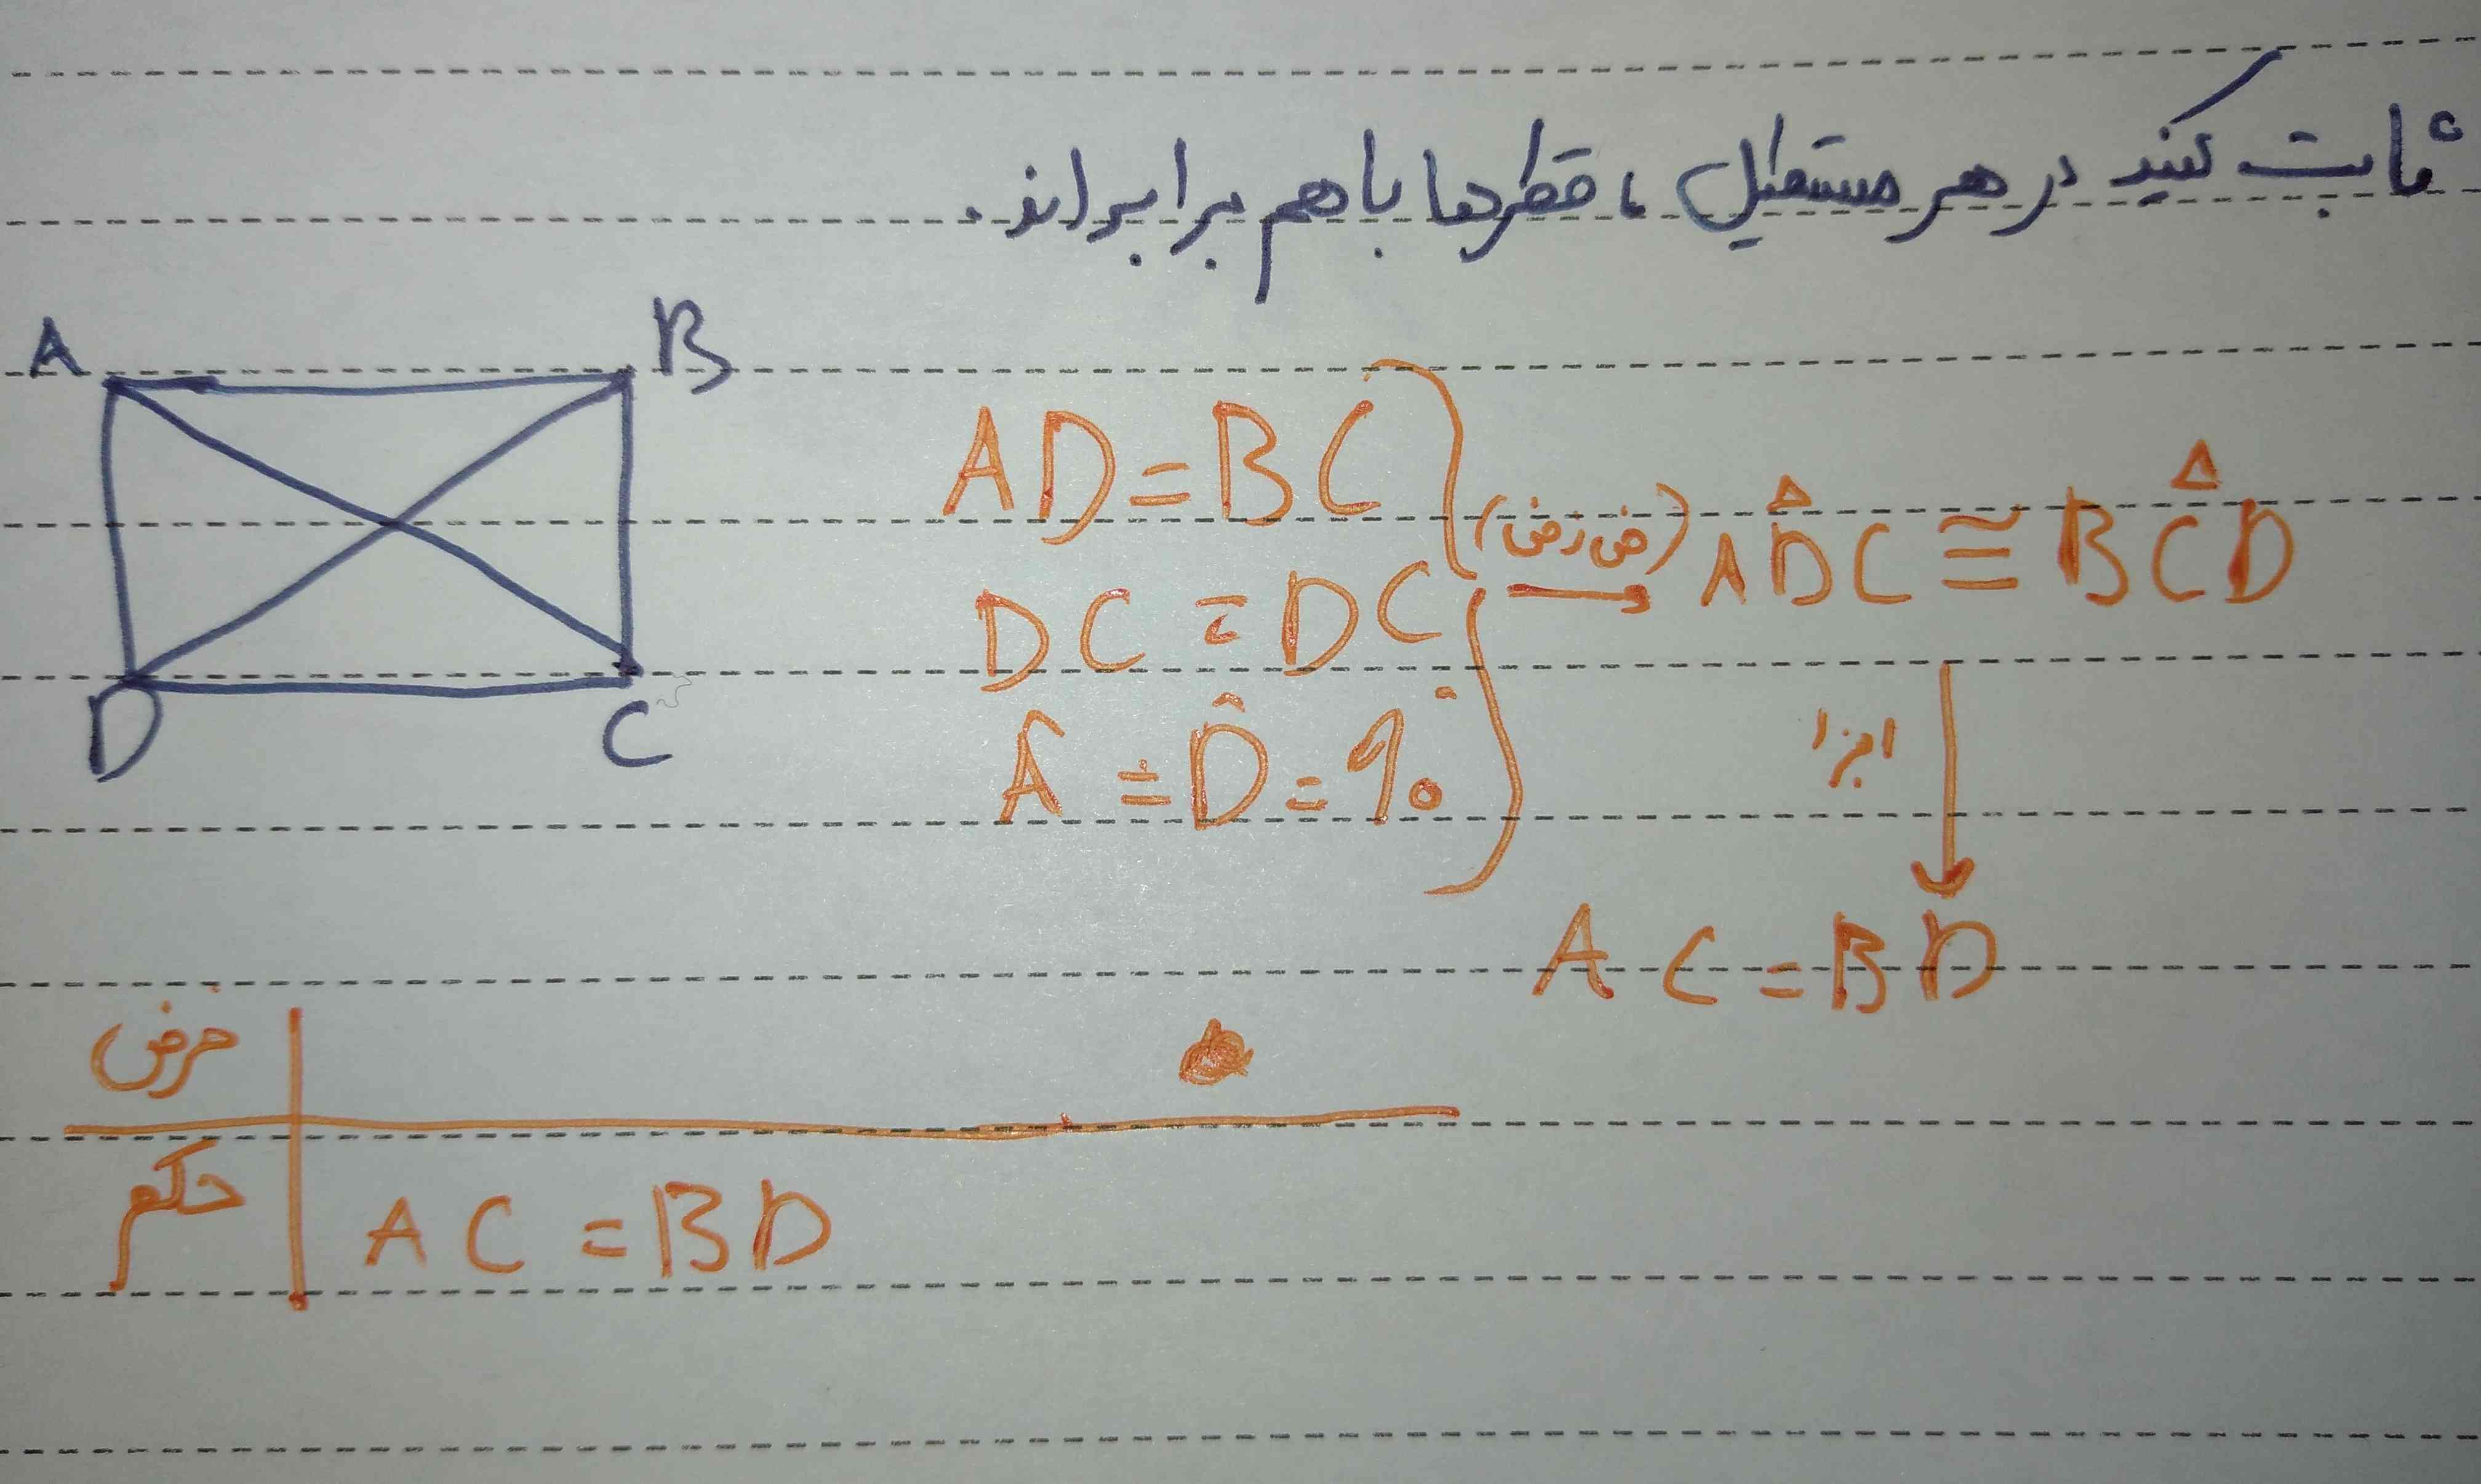 ثابت کنید در هر مستطیل، قطرها با هم برابراند.
A
B
D
C
AD = BC
DC = DC
Â = D̂ = ۹۰°
(ض ز ض)
→ AD̂C ≅ BĈD
اجزا
AC = BD
فرض
حکم
AC = BD